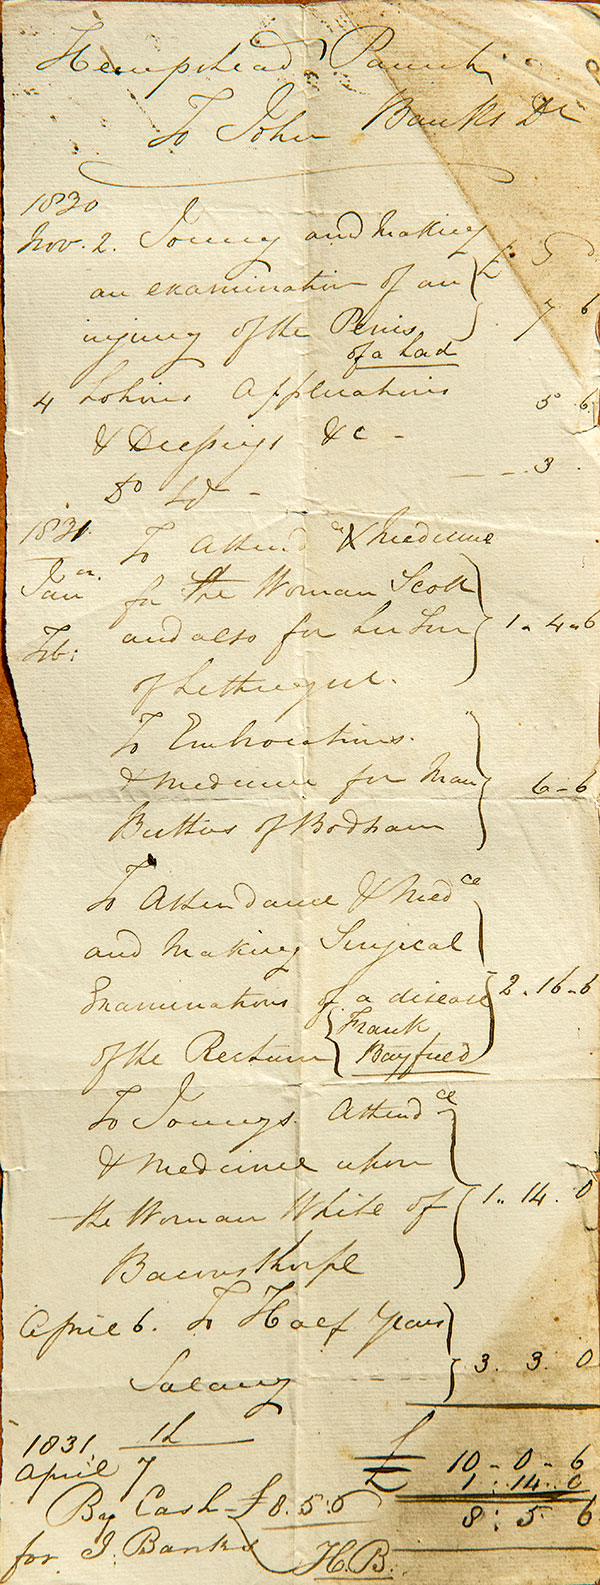 Hempstead Parish
To John Banks Dr
1830
Nov. 2. Journey and making £ s d
an examination of an
injury of the Penis 7 6
of a Lad
4 Lotions Applications 5 6
& Dressings &c -
Do - 3
1831 To Attendce & Medicine
Jan
for the Woman Scott
Feb: and also for her Son 1 4 6
of Letheringset.
To Embrocations.
& medicine for Man 6-6
Butters of Bodham
To Attendance & Medce
and making Surgical
Examinations of a disease 2. 16-6
of the Rectum Frank
Bayfield
To Journys. Attendce
& medicine upon
the Woman White of 1. 14. 0
Baconsthorpe
April 6. To Half Years
Salary 3. 3. 0
£ 10-0-6
1831
April 7 £ 1: 14. 0
By Cash £8.5:6 8: 5 6
for J. Banks H.B.